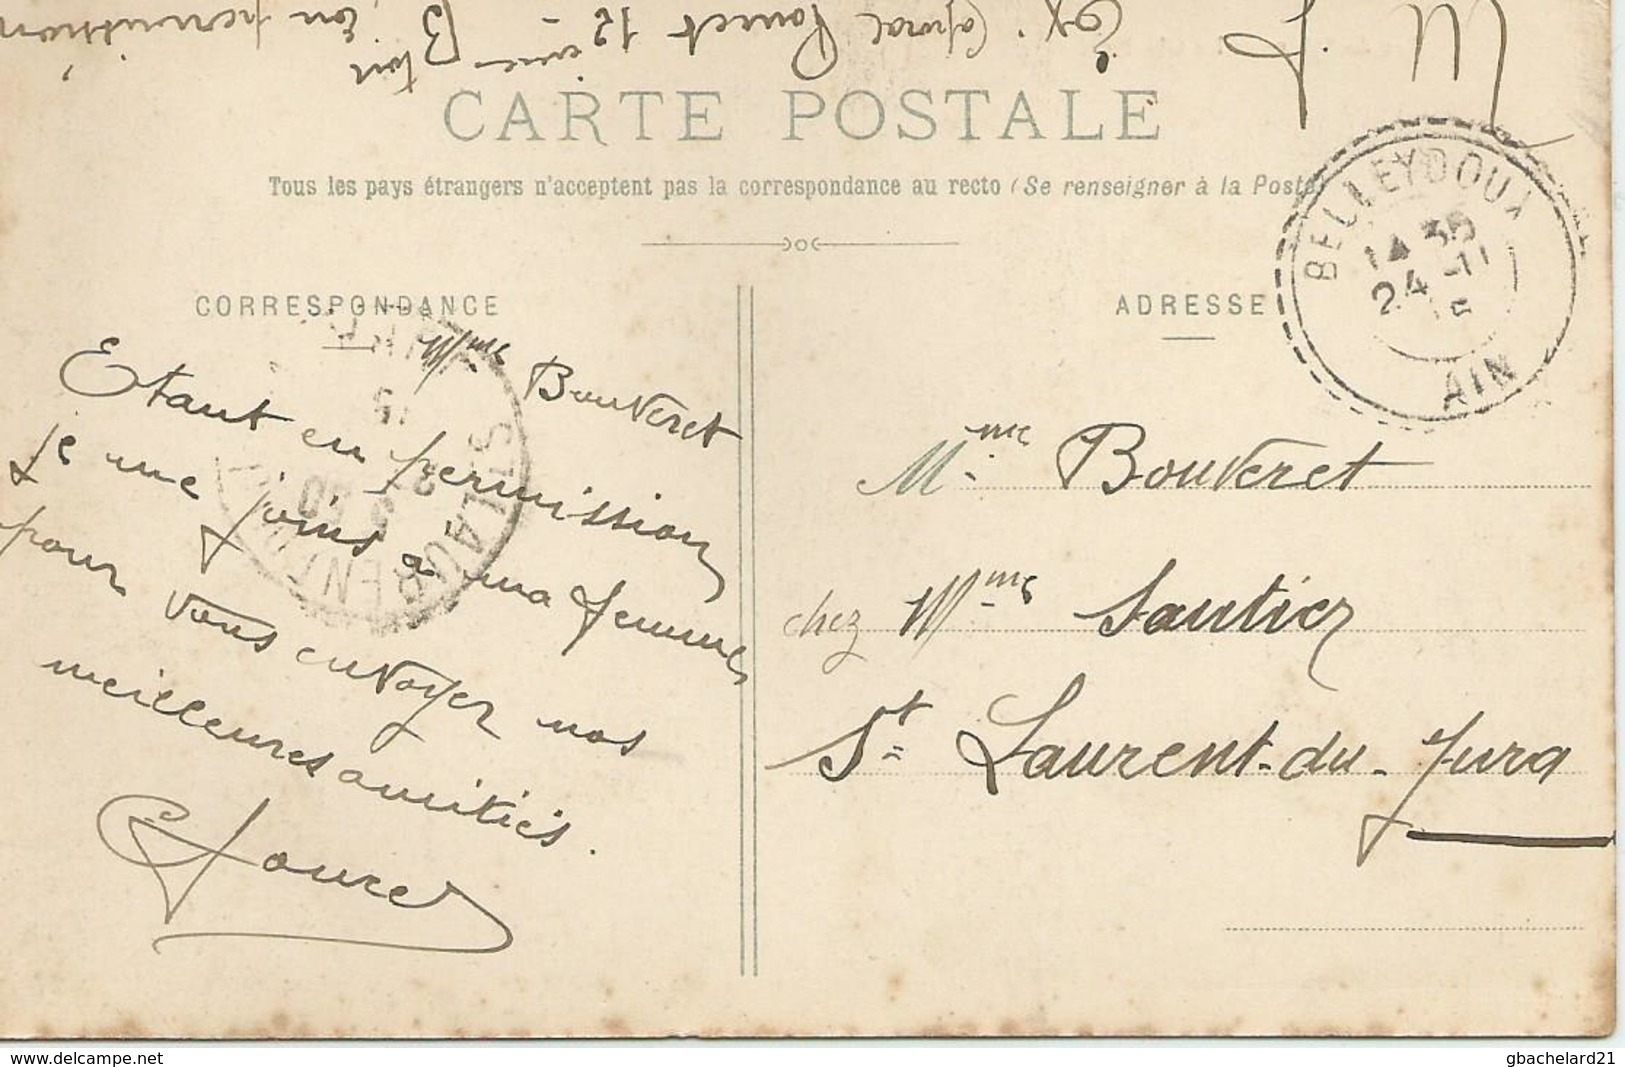 F.M
Exp. Caporal Pouret 12ème Bton en permission
CARTE POSTALE
Tous les pays étrangers n'acceptent pas la correspondance au recto (Se renseigner à la Poste)
BELLEYDOUX
14 35
24 -11
15
AIN
CORRESPONDANCE
ST LAURENT
Mme Bouveret
Etant en permission
je me joins à ma femme
pour vous envoyer nos
meilleures amitiés.
Pouret
ADRESSE
Mme Bouveret
chez Mme Sautier
St Laurent-du-Jura
www.delcampe.net
gbachelard21